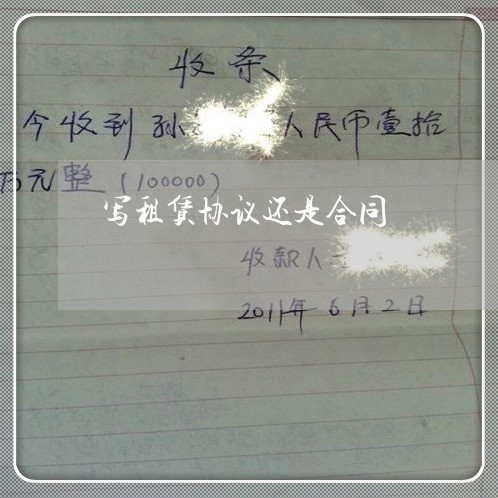 收条
今收到孙 人民币壹拾
万元整（100000）
写租赁协议还是合同
收款人
2011年6月2日